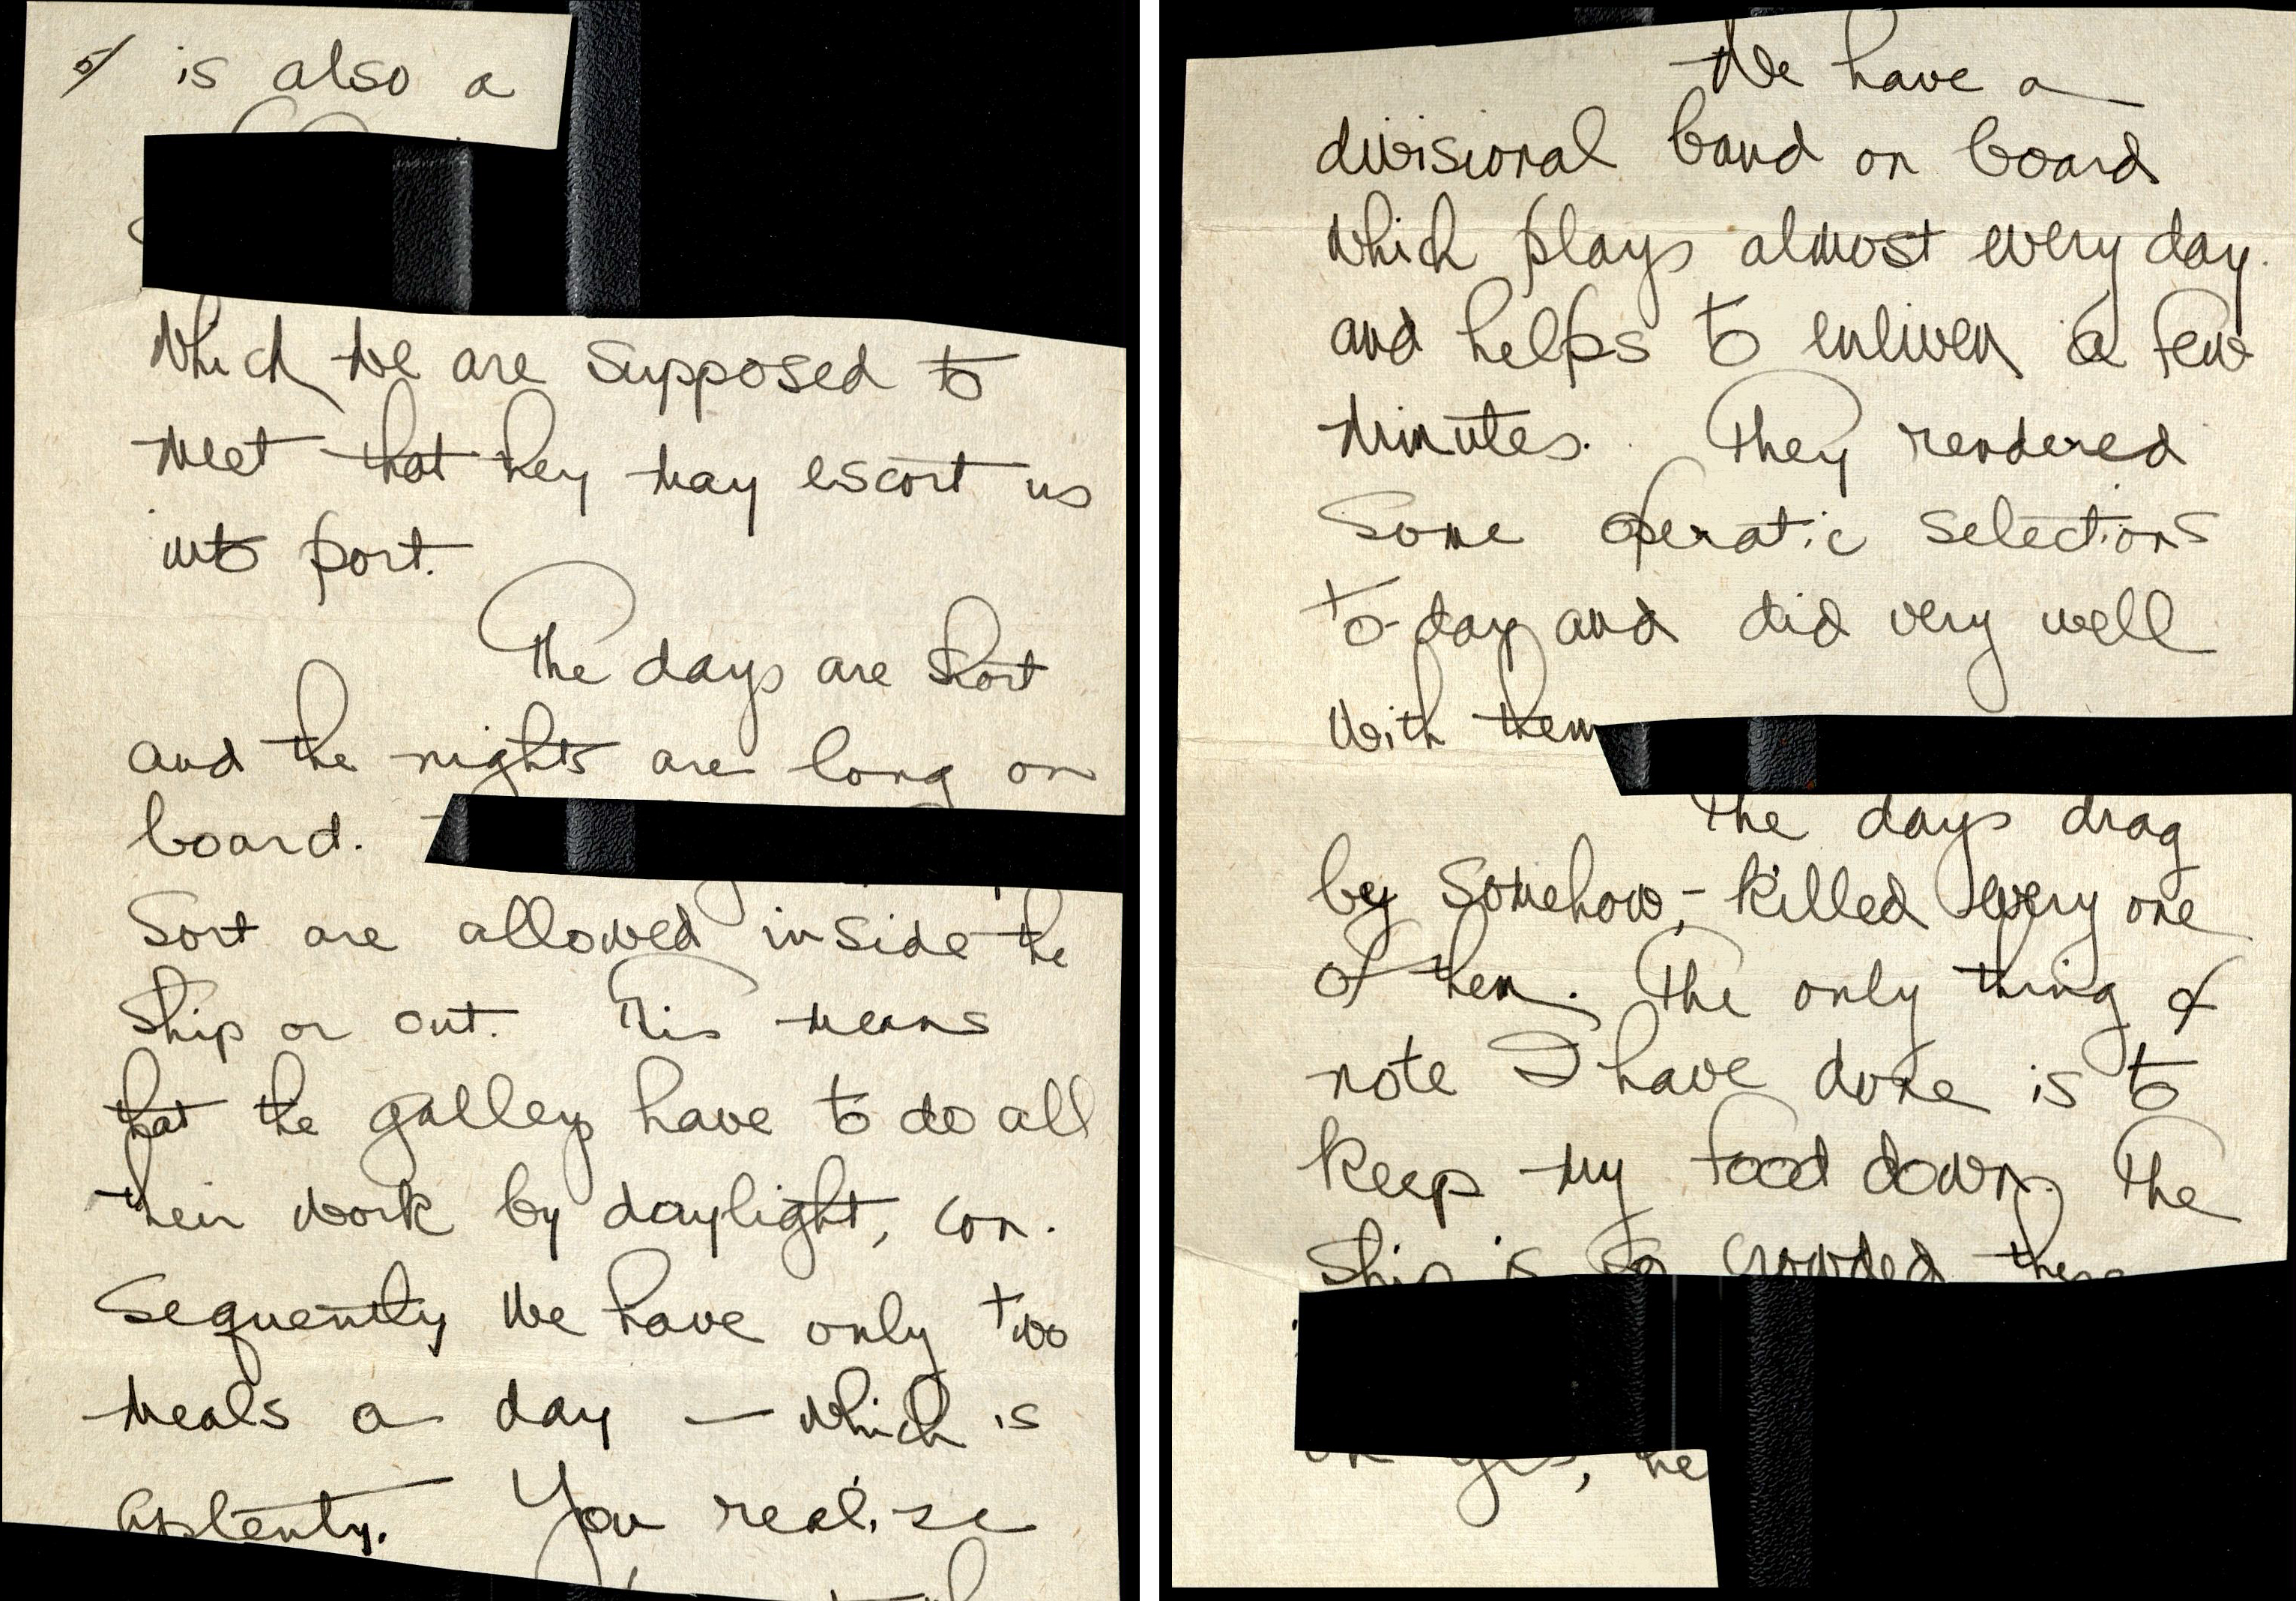 5/ is also a
which we are supposed to
meet that they may escort us
into port.
The days are short
and the nights are long on
board.
sort are allowed inside the
ship or out. This means
that the galleys have to do all
their work by daylight, con-
sequently we have only two
meals a day — which is
aplenty. You realise
We have a
divisional band on board
which plays almost every day
and helps to enliven a few
minutes. They rendered
some operatic selections
to-day and did very well
with them
The days drag
by somehow, - killed every one
of them. The only thing of
note I have done is to
keep my food down. The
ship is so crowded there
oh yes, he